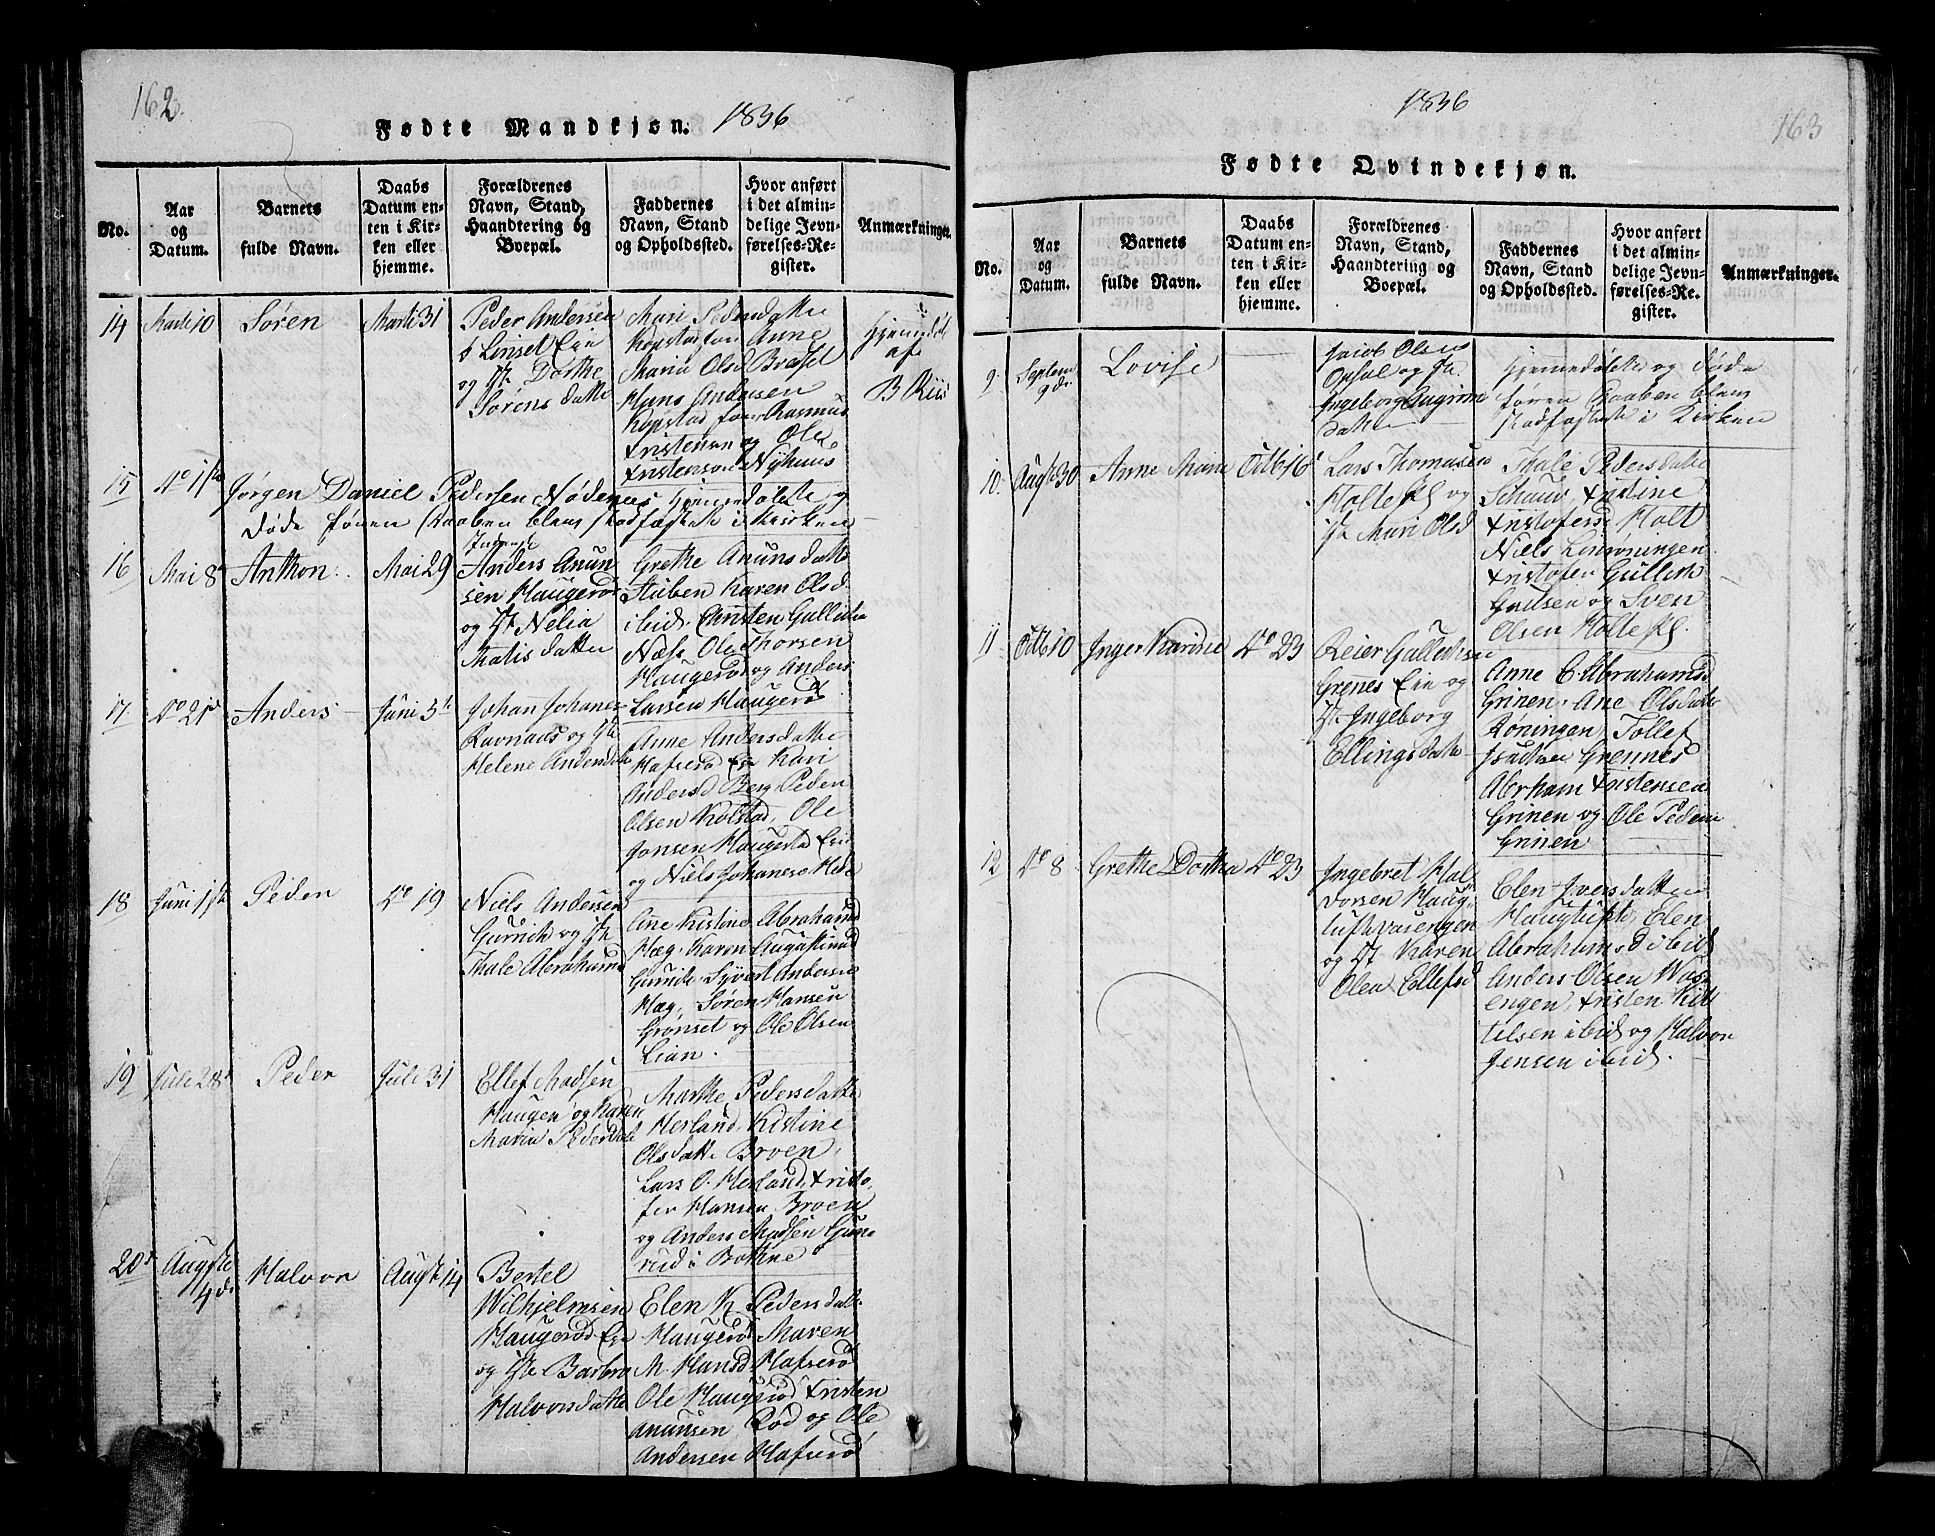 162.
Fødte Mandkjøn. 1836
No.
Aar
og
Datum.
Barnets
fulde Navn.
Daabs
Datum en-
ten i Kir-
ken eller
hjemme.
Forældrenes
Navn, Stand,
Haandtering og
Boepæl.
Faddernes
Navn, Stand
og Opholdssted.
Hvor anført
i det almin-
delige Jevn-
førelses-Re-
gister.
Anmærkninger.
14
Marti 10
Søren
Marti 31
Peder Andersen
Linset Eie
og H. Dorthe
Sørens datte
Mari Pedersdatte
Kopstad Anne
Maria Olsd
Hans Andersen
Kopstad Rasmus
Kristensen og Ole
Kristensen Nyhuus
Hjemmedøbt
af
B Riis
15
Do 1ste
Jørgen Daniel Pedersen Nødenes Hjemmedøbte og
døde føren Daaben blev stadfæstet i Kirken
16
Mai 8d
Anthon
Mai 29
Anders Anun
sen Haugerød
og H Nelia
Matis datter
Grethe Anunsdatte
Stuben Karen Olsd
ibid. Christen Gulleksen
Næss Ole Thorsen
Haugerød og Anders
Larsen Haugerød
17.
Do 21de
Anders
Juni 5te
Johan Johanes
Ravnaas og H
Helene Andersdt
Anne Andersdatte
Hafserød Eie Kari
Andersd Berg Peder
Olsen Kolstad, Ole
Jonsen Haugestad Eie
og Niels Johanese Hede
18
Juni 1ste
Peder
Do 19
Niels Andersen
Gurrick og H
Thale Abrahamsd
Ane Kistine Abrahamsd
Hæg. Karen
Sÿvert Anderse
Hæg, Søren Hansen
Grønset og Ole Olsen
Lian.
19
Juli 28d
Peder
Juli 31
Ellef Madsen
Haugen og Karen
Maria Pedersdat
Marthe Pedersdatte
Herland, Kistine
Olsdatte Broen,
Lars O. Herland, Kristo.
fer Hansen Broen
og Anders Madsen
rud i Bothne
20d
Augsti
4de
Halvor
Augst 14
Bertel
Wilhjelmsen
Haugerød Eie
og H Barbro
Halvorsdatte
Elen K Pedersdatte
Haugerød Maren
M. Hansd Hafserød
Ole Haugerød Kristen
Anunsen Rød og Ole
Andersen Hafserød
1836
163
Fødte Qvindekjøn.
No.
Aar
og
Datum.
Barnets
fulde Navn.
Daabs
Datum en-
ten i Kir-
ken eller
hjemme.
Forældrenes
Navn, Stand,
Haandtering og
Boepæl.
Faddernes
Navn, Stand
og Opholdssted.
Hvor anført
i det almin-
delige Jevn-
førelses-Re-
gister.
Anmærkninger.
9.
Septem
9de
Lovise
Jacob Olsen
Opsal og H.
Ingeborg
datter
Hjemmedøbte og døde
føren Daaben blev
stadfæstet i Kirken
10.
Augst 30
Anne Marie
Octb 16
Lars Thomasen
Holte Pl og
H Mari Olsd
Thale Pedersdatte
Kistine
Kristofersd Holt
Niels Linrøningen
Kristofer Gullik
og Sven
Olsen Holte Pl.
11
Octb 10
Inger Karidse
Do 23
Reier Gulleksen
Grenes Eie og
H. Ingeborg
Ellingsdatte
Anne C. Abrahamsd
Grinen, Ane Olsdatte
Røningen, Tollef
Isaksen Grennes
Abraham Kristensen
Grinen og Ole Peders
Grinen
12
Do 8
Grethe Dorthea
Do 23
Ingebret Hal
vorsen Haug
tuft vasengen
og H Karen
Olea Ellefsd
Elen Iversdatter
Haugtuft, Elen
Abrahamsd ibid
Anders Olsen Was,
engen, Kristen Kitt
telsen ibid og Halvor
Jensen ibid.